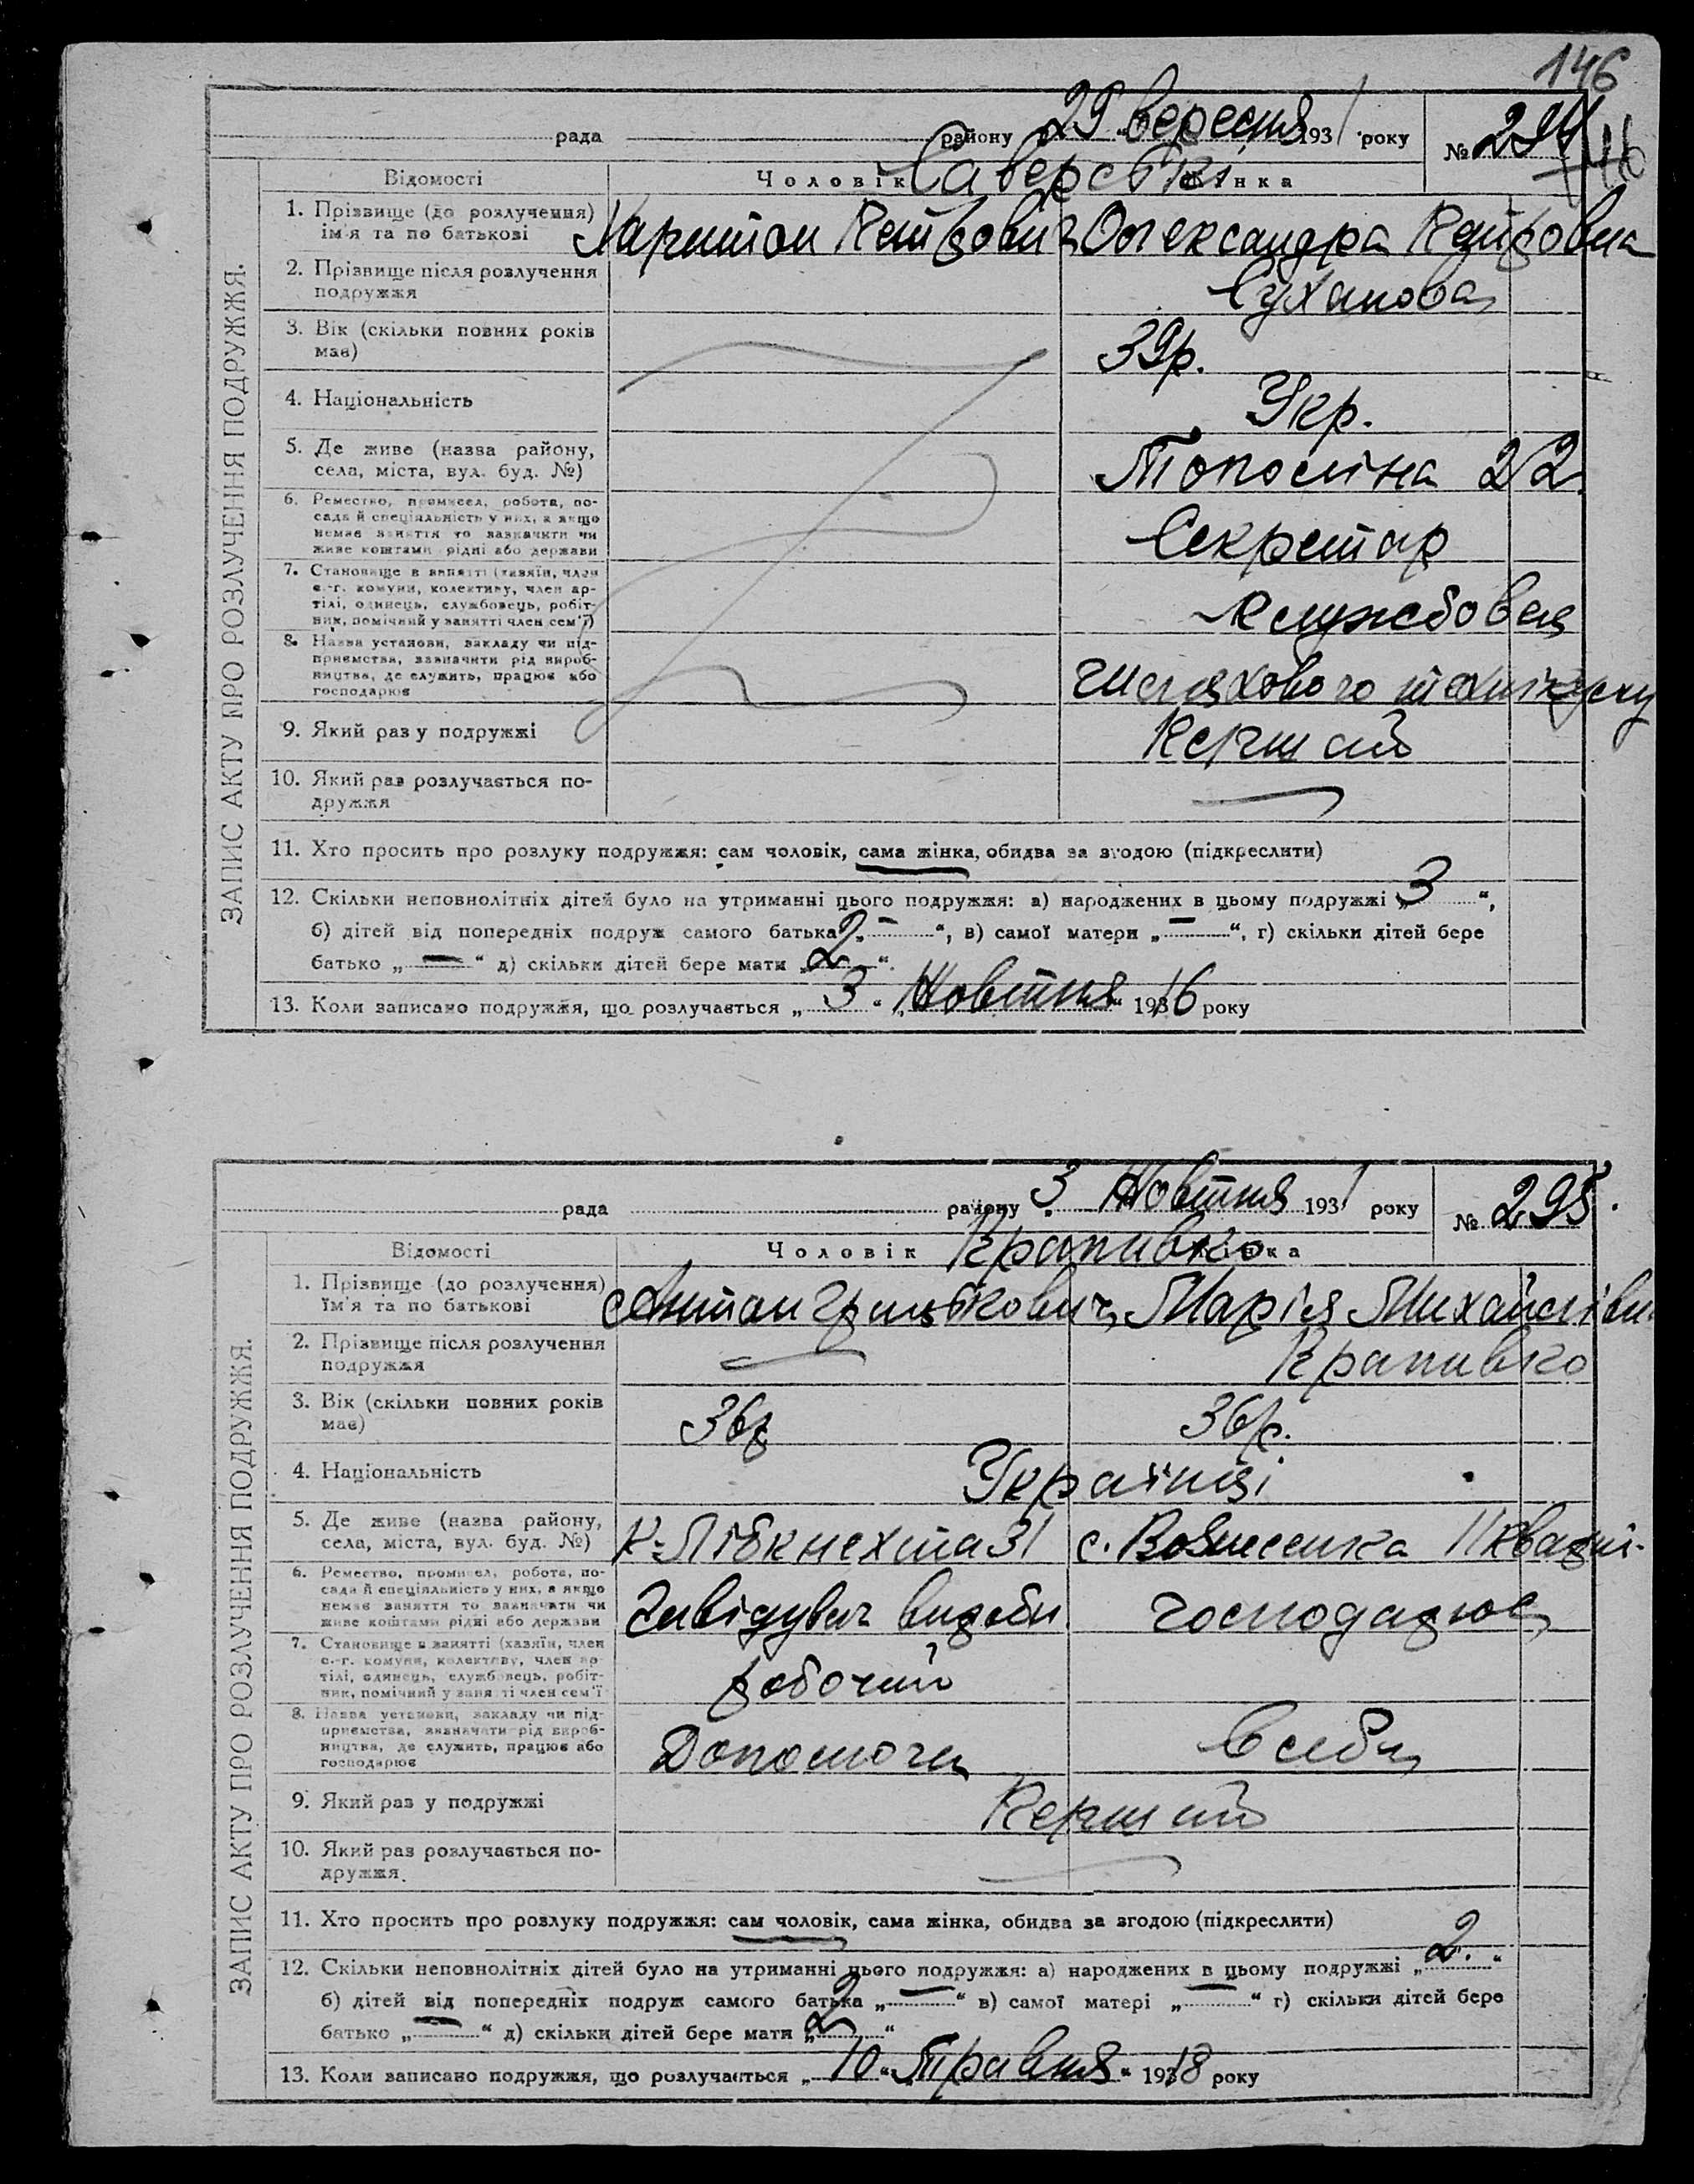 146
рада району 29 вересня 1931 року № 294
146
Відомості Чоловік Жінка
Саверські
ЗАПИС АКТУ ПРО РОЗЛУЧЕННЯ ПОДРУЖЖЯ.
1. Прізвище (до розлучення) ім'я та по батькові Харитон Петрович Олександра Петровна
2. Прізвище після розлучення подружжя Суханова
3. Вік (скільки повних років має) 39р.
4. Національність Укр.
5. Де живе (назва району, села, міста, вул. буд. №) Тополіна 22
6. Ремество, промисел, робота, посада й спеціяльність у них, а якщо немає заняття то зазначити чи живе коштами рідні або держави Секретар
7. Становище в занятті (хазяїн, член с.-г. комуни, колективу, член артілі, одинець, службовець, робітник, помічний у занятті член сем'ї) службовец
8. Назва установи, закладу чи підприємства, зазначити рід виробництва, де служить, працює або господарює Шляхового технікуму
9. Який раз у подружжі Перший
10. Який раз розлучається подружжя —
11. Хто просить про розлуку подружжя: сам чоловік, сама жінка, обидва за згодою (підкреслити)
12. Скільки неповнолітніх дітей було на утриманні цього подружжя: а) народжених в цьому подружжі „3“,
б) дітей від попередніх подруж самого батька 2 „—“, в) самої матери „—“, г) скільки дітей бере
батько „—“ д) скільки дітей бере мати „2“.
13. Коли записано подружжя, що розлучається „3“ „Жовтня“ 1916 року
рада району 3 Жовтня 1931 року № 295.
Відомості Чоловік Жінка
Крапивко
ЗАПИС АКТУ ПРО РОЗЛУЧЕННЯ ПОДРУЖЖЯ.
1. Прізвище (до розлучення) ім'я та по батькові Антон Грицькович Марія Михайлівн
2. Прізвище після розлучення подружжя — Крапивко
3. Вік (скільки повних років має) 36р 36р.
4. Національність Українці
5. Де живе (назва району, села, міста, вул. буд. №) К-Лібкнехта 31 с. Вознесенка
6. Ремество, промисел, робота, посада й спеціяльність у них, а якщо немає заняття то зазначати чи живе коштами рідні або держави Завідувач господарює
7. Становище в занятті (хазяїн, член с.-г. комуни, колективу, член артілі, одинець, службовець, робітник, помічний у занятті член сем'ї робочий
8. Назва установи, закладу чи підприємства, зазначати рід виробництва, де служить, працює або господарює Допомоги в себе
9. Який раз у подружжі Перший
10. Який раз розлучається подружжя. —
11. Хто просить про розлуку подружжя: сам чоловік, сама жінка, обидва за згодою (підкреслити)
12. Скільки неповнолітніх дітей було на утриманні цього подружжя: а) народжених в цьому подружжі „2.“
б) дітей від попередніх подруж самого батька „—“ в) самої матері „—“ г) скільки дітей бере
батько „—“ д) скільки дітей бере мати „2“
13. Коли записано подружжя, що розлучається „10“ „Травня“ 1918 року